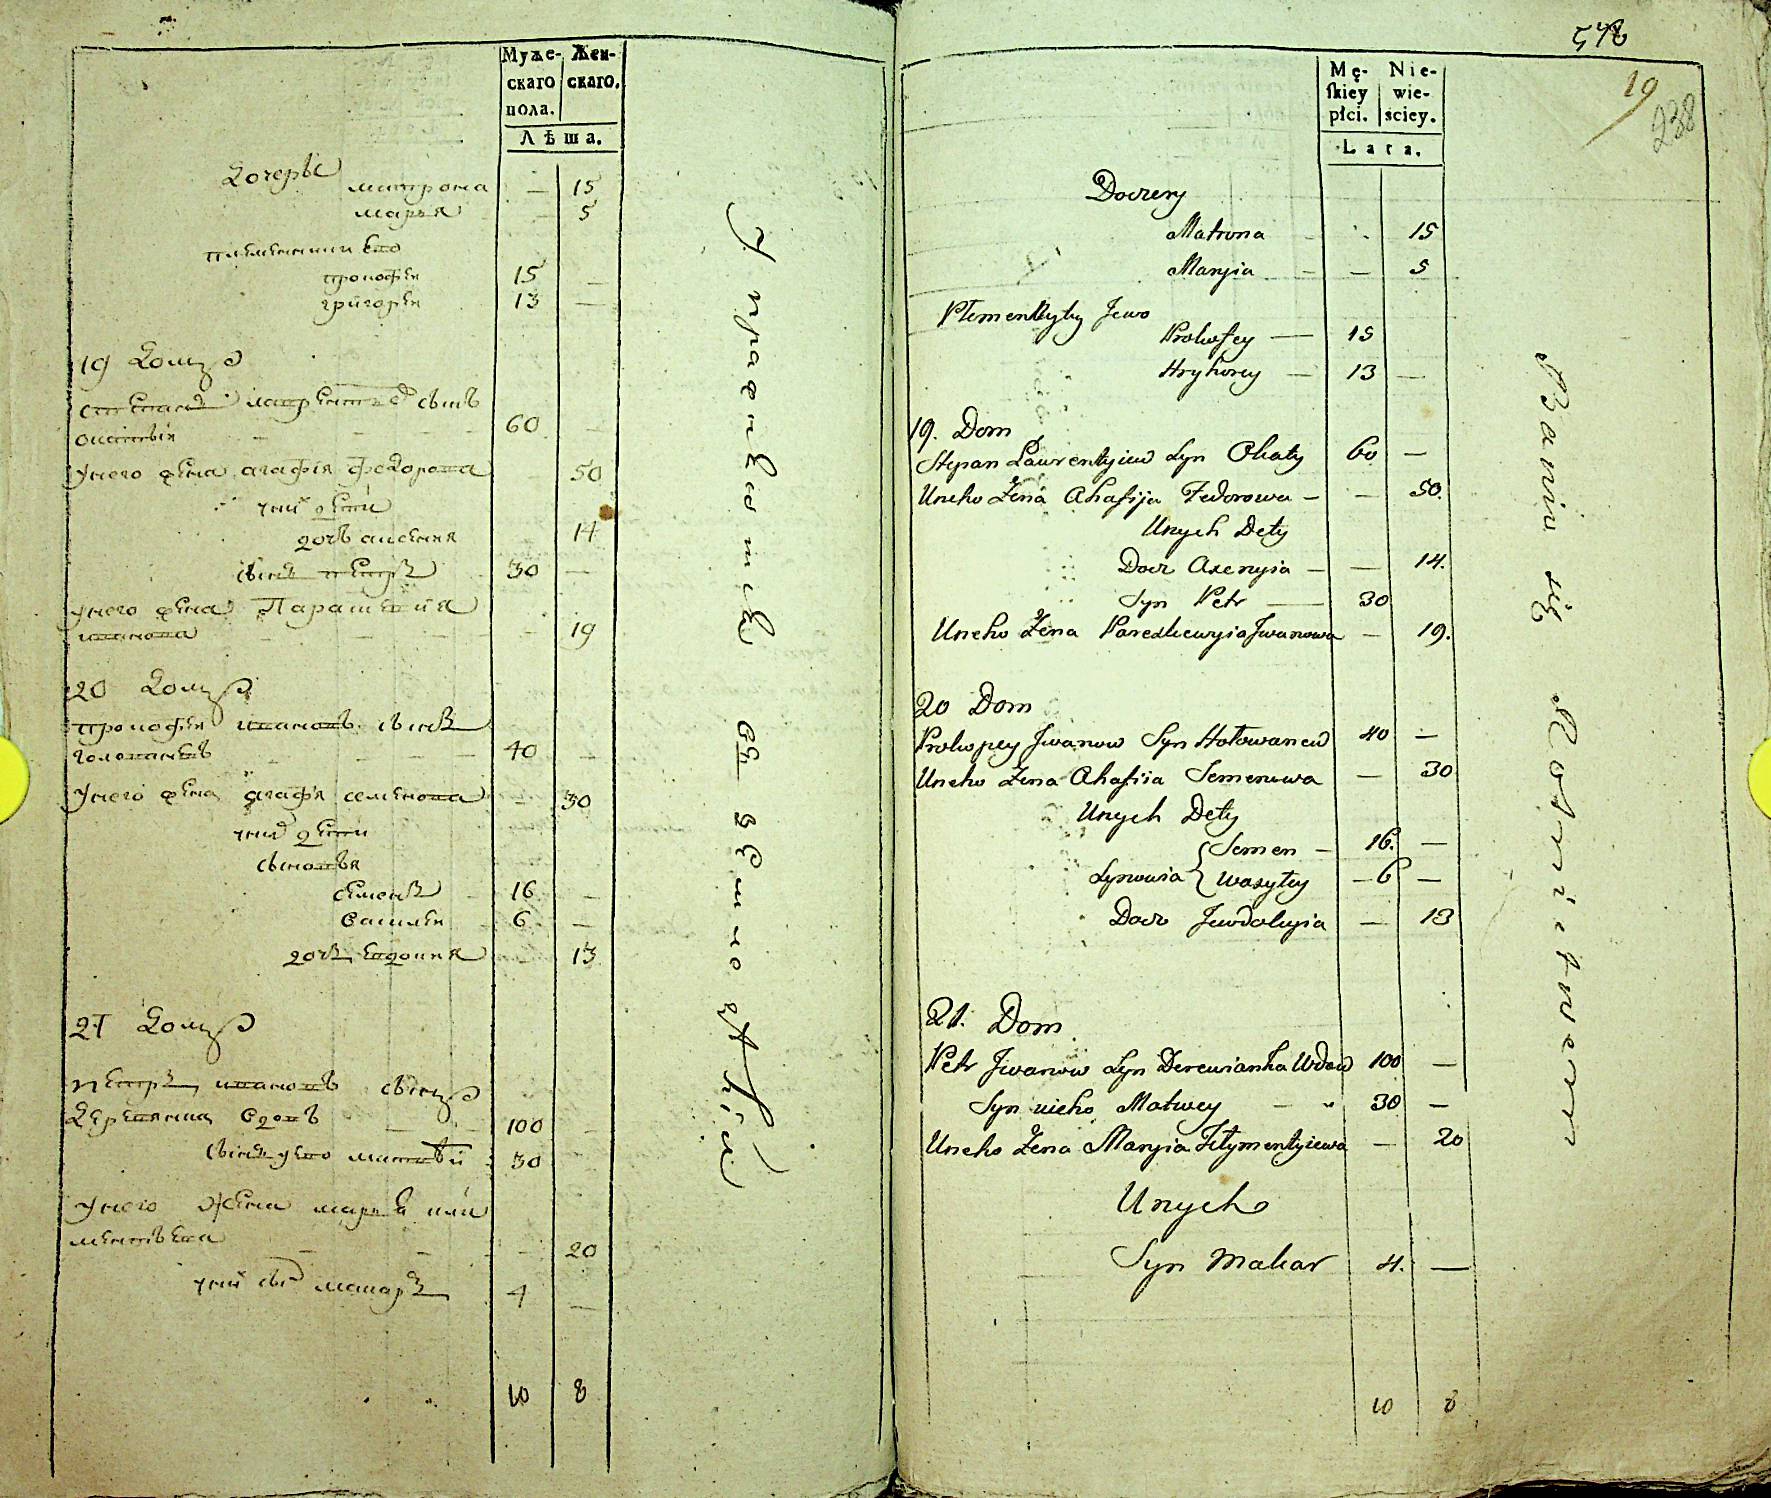 Муже- Жен-
скаго скаго.
пола.
Лѣта.
Дочерѣ
матрона — 15
марья — 5
племенники ево
прокофѣи 15 —
григорѣи 13 —
19 Домъ
степанъ лаврентиевъ сынъ
60 —
Унего жена агафія федорова 50
уних дети
дочъ аксения 14
сынъ петръ 30 —
унего жена Парашкевия
иванова — 19
20 Домъ
прокофѣи ивановъ сынъ
голованевъ 40 —
Унего жена агафія семенова — 30
уних дети
сыновья
семенъ 16 —
василеи 6 —
дочъ евдокия 13
21 Домъ
петръ ивановъ сынъ
Деревянка вдовъ 100 —
сынъ уево матвѣй 30
Унего жена марья кли
ментѣева — 20
уних сынъ макаръ 4 —
10 8
546
19
238
Mę- Nie-
skiey wie-
płci. ściey.
Lata.
Doczery
Matrona 15
Maryia — — 5
Plemennyky Jewo
Prokofey — 15
Hryhorey — 13 —
19. Dom
Stepan Lawrentyiew Syn Okaty 60 —
Uneho Żena Ahafija Fedorowa — — 50.
Unych Dety
Docz Axenyia — — 14.
Syn Petr — 30
Uneho Żena Paredkewyia Jwanowa — 19.
20 Dom
Prokopey Jwanow Syn Hołowanew 40 —
Uneho Żena Ahafiia Semenowa — 30
Unych Dety
Semen — 16. —
Synowia { Wasyłey — 6 —
Docz Jewdokyia — 13
21. Dom
Petr Jwanow Syn Derewianka Wdow 100 —
Syn uieho Matwey — " 30 —
Uneho Żena Maryia Kłymentyiewa — 20
Unycho
Syn Makar 4. —
10 8